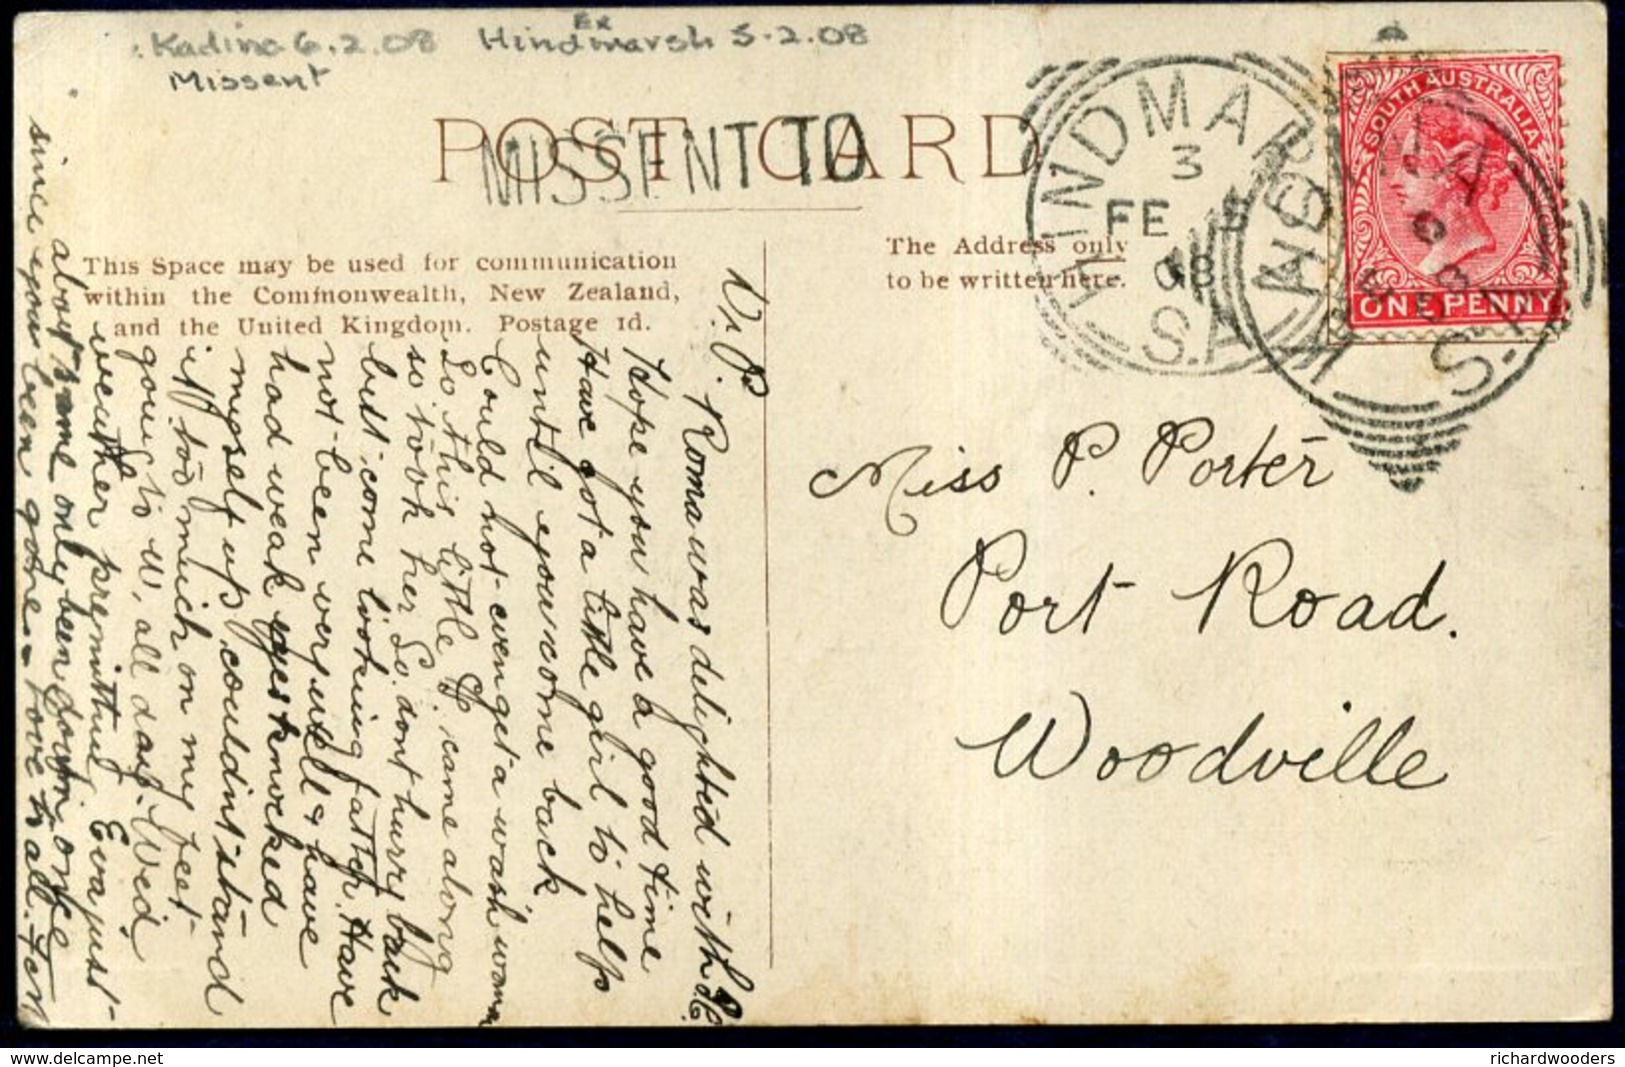 Kadina 6.2.08
Ex
Hindmarsh 5.2.08
Missent
POST CARD
MISSENT TO
HINDMARSH
3
FE 5
08
S.A
KADINA
S.A
SOUTH AUSTRALIA
ONE PENNY
This Space may be used for communication
within the Commonwealth, New Zealand,
and the United Kingdom. Postage 1d.
The Address only
to be written here.
Miss P. Porter
Port Road.
Woodville
V.P.
Roma was delighted with P.C.
Hope you have a good time
Have got a little girl to help
until you come back
Could not even get a wash woman
So this little came along
so took her. So dont hurry back
but come looking fatter. Have
not been very well & have
had weak eyes knocked
myself up, couldn't stand
it too much on my feet
going to W, all day. Wed,
weather permitting Eva just
about same only been down once
since you been gone. Love to all. from
delcampe.net
richardwooders